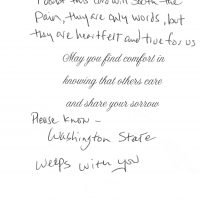 I doubt this card will soothe the
Pain, they are only words, but
they are heartfelt and true for us
May you find comfort in
knowing that others care
and share your sorrow
Please know –
Washington State
weeps with you